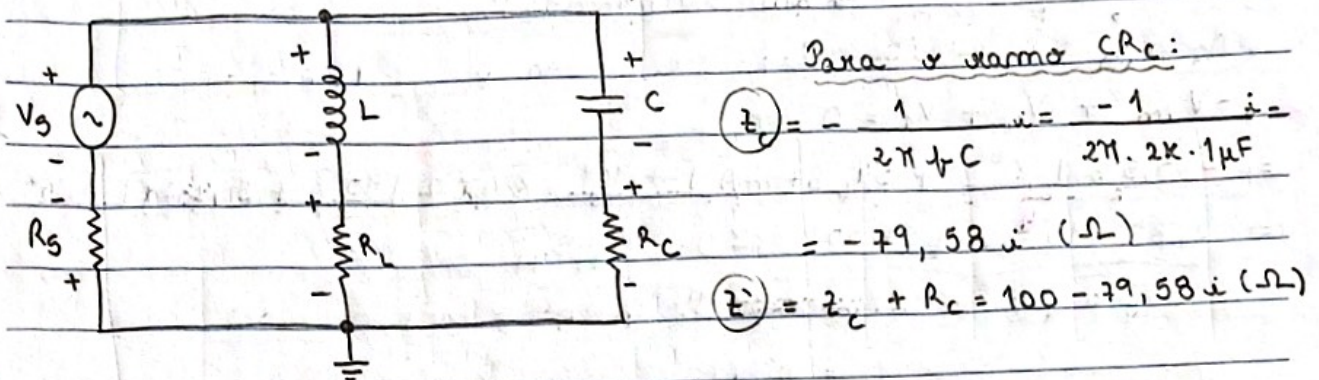 +
Vs
~
-
-
Rs
+
+
L
-
+
RL
-
+
C
-
+
RC
-
Para o ramo CRC:
Zc = - 1 / 2π f C i = - 1 / 2π . 2K . 1μF i =
= - 79,58 i (Ω)
Z' = Zc + RC = 100 - 79,58 i (Ω)